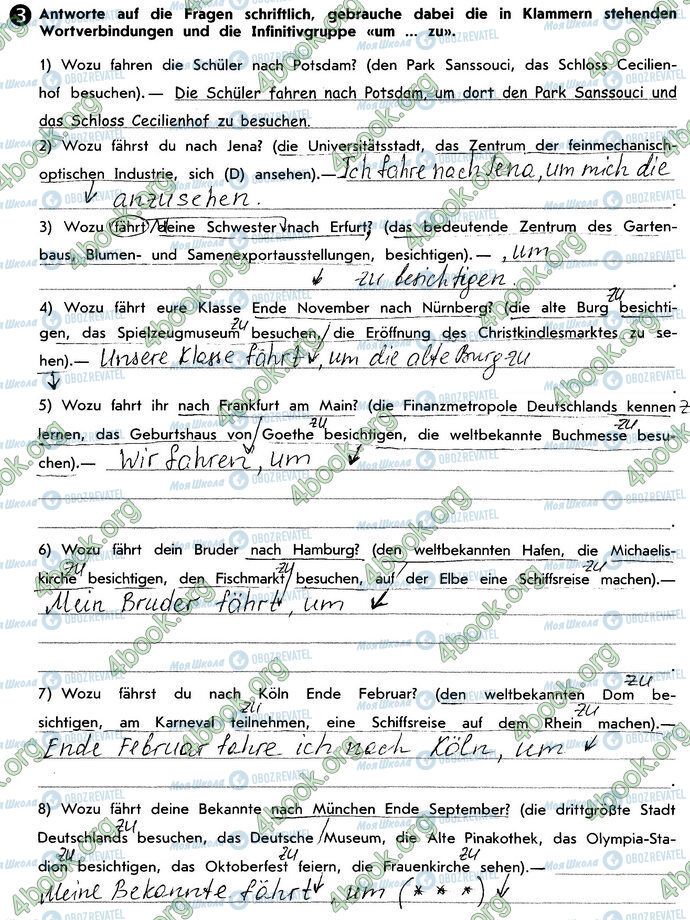 3 Antworte auf die Fragen schriftlich, gebrauche dabei die in Klammern stehenden
Wortverbindungen und die Infinitivgruppe «um ... zu».
1) Wozu fahren die Schüler nach Potsdam? (den Park Sanssouci, das Schloss Cecilien-
hof besuchen).— Die Schüler fahren nach Potsdam, um dort den Park Sanssouci und
das Schloss Cecilienhof zu besuchen.
2) Wozu fährst du nach Jena? (die Universitätsstadt, das Zentrum der feinmechanisch-
optischen Industrie, sich (D) ansehen).— Ich fahre nach Jena, um mich die
anzusehen.
3) Wozu fährt deine Schwester nach Erfurt? (das bedeutende Zentrum des Garten-
baus, Blumen- und Samenexportausstellungen, besichtigen). — , um
zu besichtigen.
4) Wozu fährt eure Klasse Ende November nach Nürnberg? (die alte Burg zu besichti-
gen, das Spielzeugmuseum zu besuchen, die Eröffnung des Christkindlesmarktes zu se-
hen).— Unsere Klasse fährt, um die alte Burg zu
5) Wozu fahrt ihr nach Frankfurt am Main? (die Finanzmetropole Deutschlands kennen z
lernen, das Geburtshaus von Goethe zu besichtigen, die weltbekannte Buchmesse zu besu-
chen).— Wir fahren, um
6) Wozu fährt dein Bruder nach Hamburg? (den weltbekannten Hafen, die Michaelis-
kirche zu besichtigen, den Fischmarkt zu besuchen, auf der Elbe eine Schiffsreise zu machen).—
Mein Bruder fährt, um
7) Wozu fährst du nach Köln Ende Februar? (den weltbekannten Dom zu be-
sichtigen, am Karneval zu teilnehmen, eine Schiffsreise auf dem Rhein zu machen).—
Ende Februar fahre ich nach Köln, um
8) Wozu fährt deine Bekannte nach München Ende September? (die drittgrößte Stadt
Deutschlands zu besuchen, das Deutsche Museum, die Alte Pinakothek, das Olympia-Sta-
dion zu besichtigen, das Oktoberfest zu feiern, die Frauenkirche zu sehen).—
Meine Bekannte fährt, um (* * *)